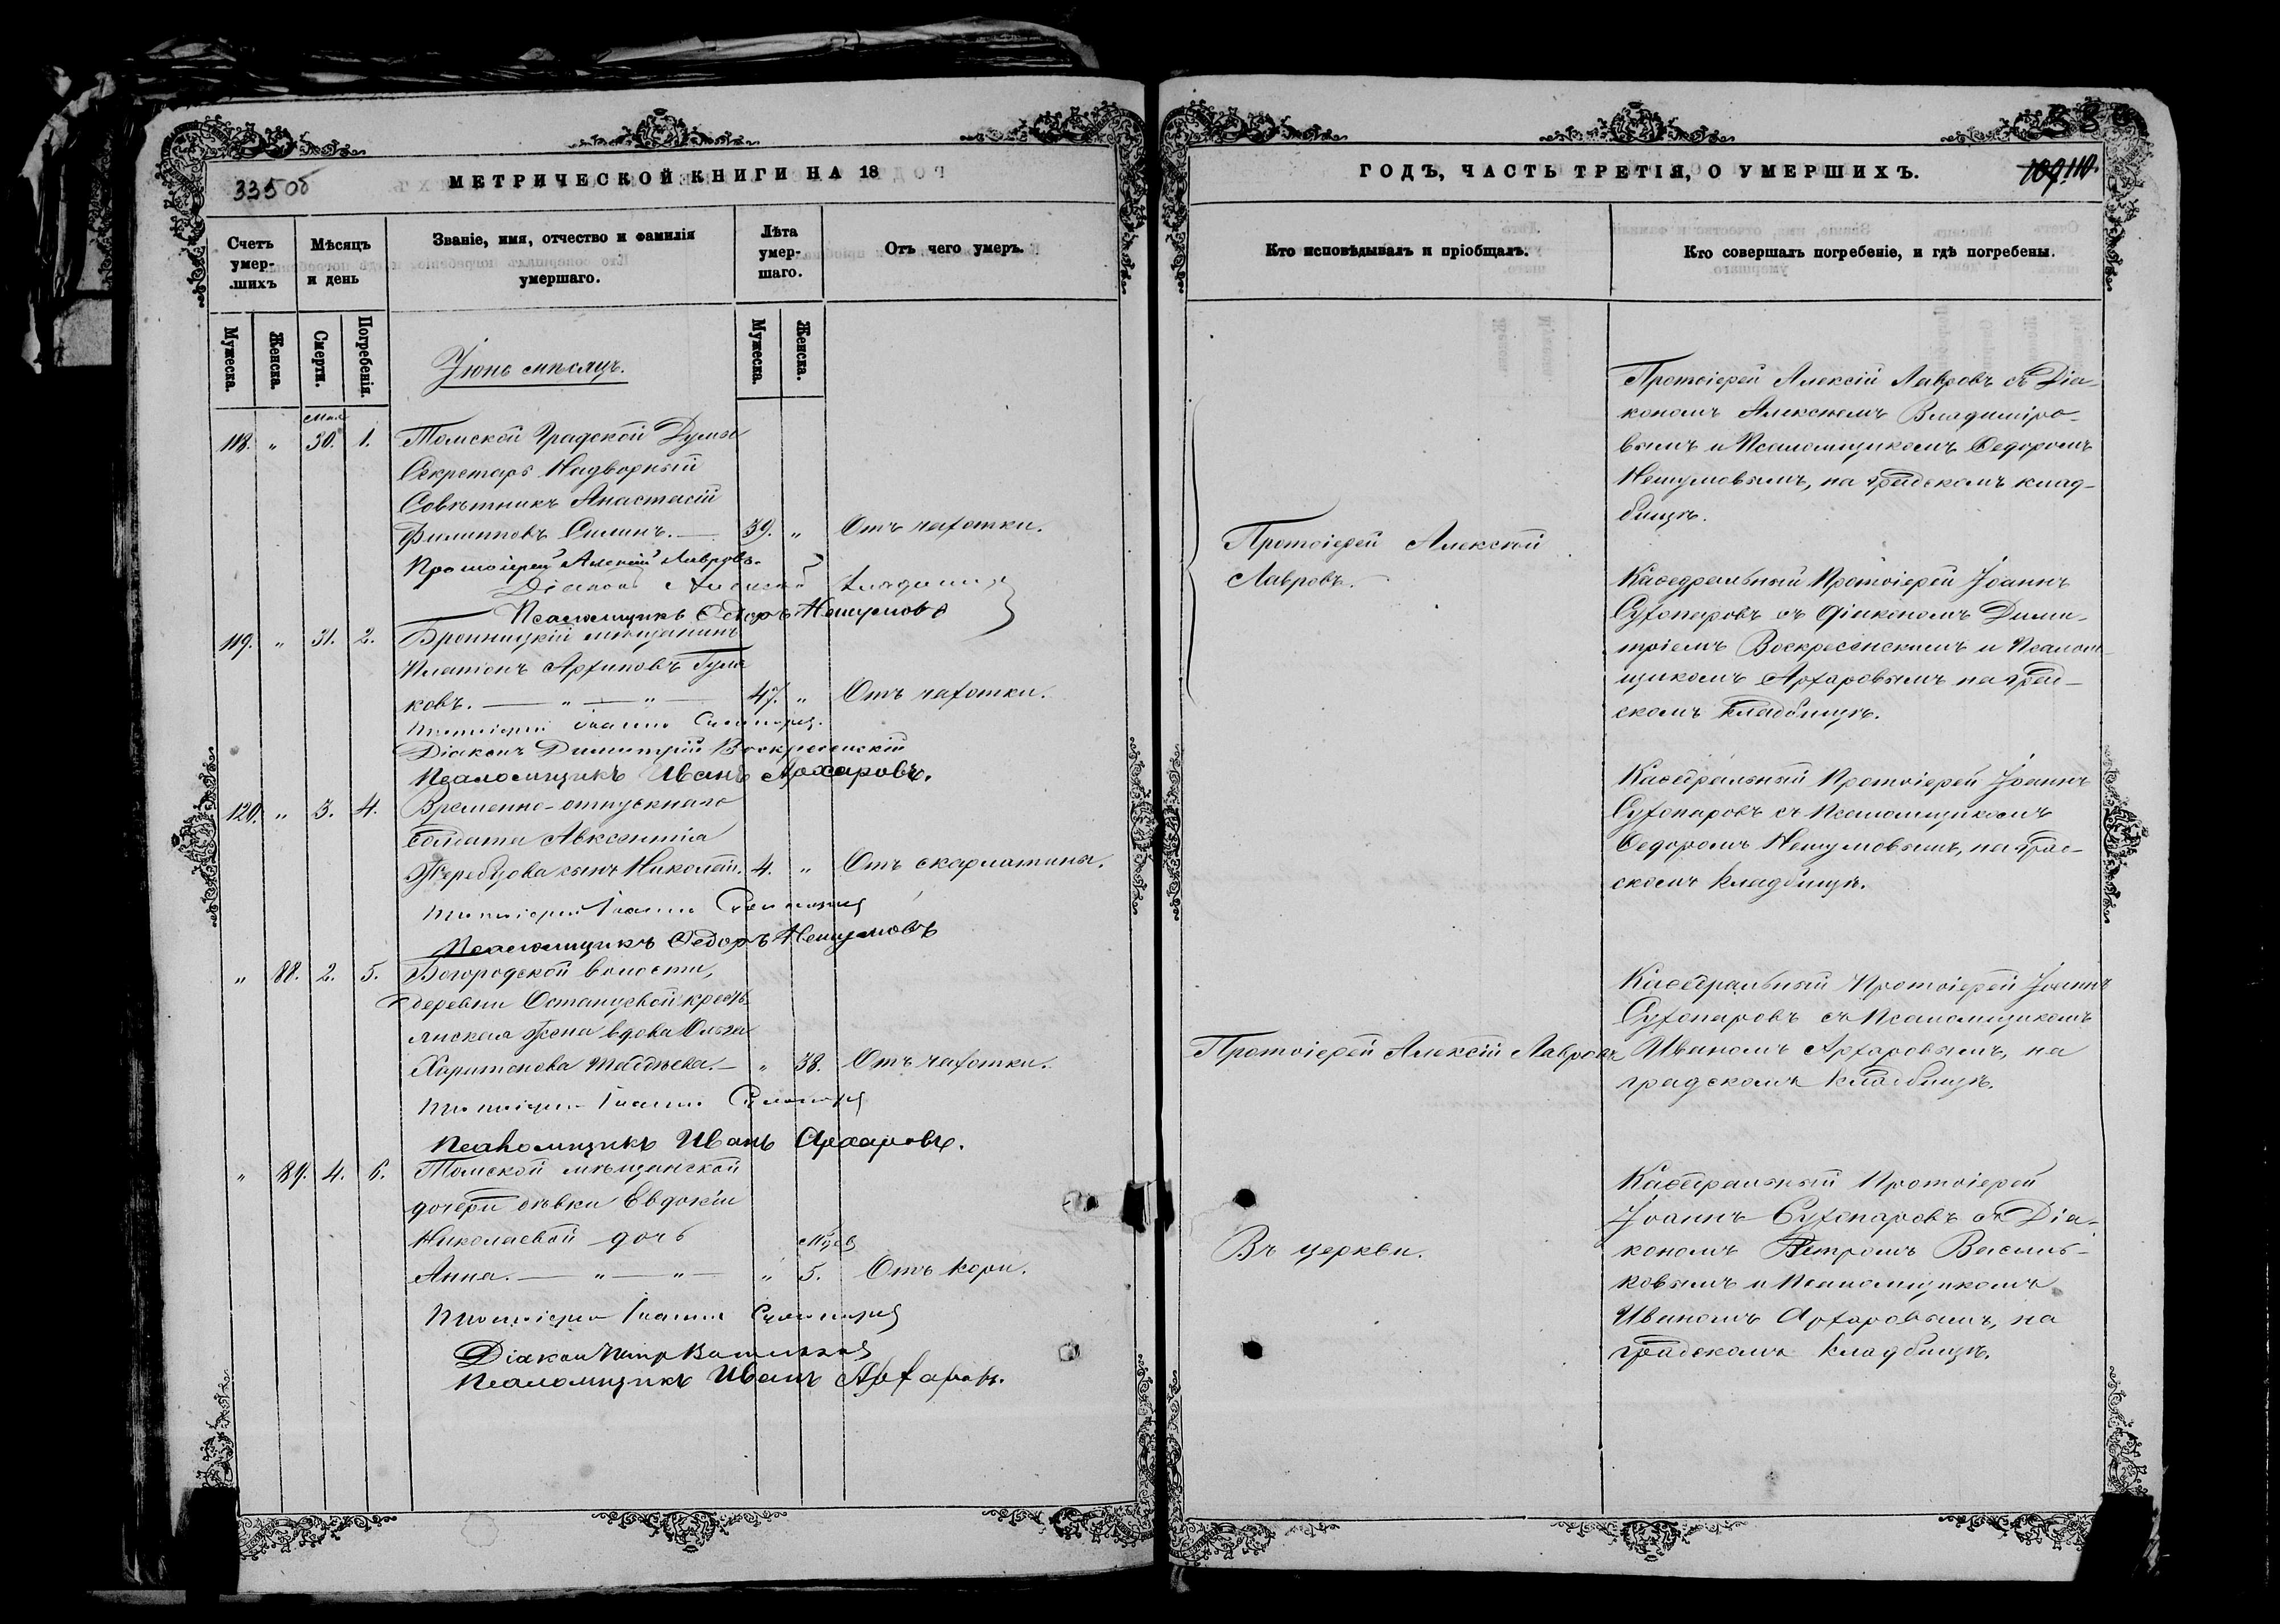 335 об
МЕТРИЧЕСКОЙ КНИГИ НА 18
Счетъ умер-шихъ
Мѣсяцъ и день
Званіе, имя, отчество и фамилія умершаго.
Лѣта умер-шаго.
Отъ чего умеръ.
Мужеска.
Женска.
Смерти.
Погребенія.
Мужеска.
Женска.
Іюнь мѣсяцъ.
Мая
118. " 30. 1. Томской Градской Думы
Секретарь Надворный
Совѣтникъ Анастасій
Филипповъ Силинъ. — 39. " Отъ чахотки.
Протоіерей Алексій Лавровъ.
Діаконъ Алексѣй
Псаломщикъ Ѳедоръ Нешумовъ
119. " 31. 2. Бронницкій мѣщанинъ
Платонъ Архиповъ Гула
ковъ. — " — " — 47. " Отъ чахотки.
Протоіерей Іоаннъ Сухопаровъ.
Діаконъ Димитрій Воскресенскій
Псаломщикъ Иванъ Архаровъ.
120. " 3. 4. Временно-отпускнаго
солдата Авксентія
Жеребцова сынъ Николай. 4. " Отъ скарлатины.
Протоіерей Іоаннъ Сухопаровъ
Псаломщикъ Ѳедоръ Нешумовъ
" 88. 2. 5. Богородской волости,
деревни крестья
янская жена вдова Ольга
Харитонова — " 38. Отъ чахотки.
Протоіерей Іоаннъ Сухопаровъ
Псаломщикъ Иванъ Архаровъ.
" 89. 4. 6. Томской мѣщанской
дочери дѣвки Евдокіи
Николаевой дочь мѣсяц
Анна. — " — " — " 5. Отъ кори.
Протоіерей Іоаннъ Сухопаровъ
Діаконъ Петръ Васильковъ
Псаломщикъ Иванъ Архаровъ.
ГОДЪ, ЧАСТЬ ТРЕТІЯ, О УМЕРШИХЪ.
109. 110.
Кто исповѣдывалъ и пріобщалъ.
Кто совершалъ погребеніе, и гдѣ погребены.
Протоіерей Алексѣй
Лавровъ.
Протоіерей Алексій Лавровъ
Въ церкви.
Протоіерей Алексій Лавровъ съ Діа-
кономъ Алексѣемъ Владиміро-
вымъ и Псаломщикомъ Ѳедоромъ
Нешумовымъ, на градскомъ клад-
бищѣ.
Каѳедральный Протоіерей Іоаннъ
Сухопаровъ съ Діакономъ Дими-
тріемъ Воскресенскимъ и Псалом-
щикомъ Архаровымъ на град-
скомъ кладбищѣ.
Каѳедральный Протоіерей Іоаннъ
Сухопаровъ съ Псаломщикомъ
Ѳедоромъ Нешумовымъ, на град-
скомъ кладбищѣ.
Каѳедральный Протоіерей Іоаннъ
Сухопаровъ съ Псаломщикомъ
Иваномъ Архаровымъ, на
градскомъ кладбищѣ.
Каѳедральный Протоіерей
Іоаннъ Сухопаровъ съ Діа-
кономъ Петромъ Василь-
ковымъ и Псаломщикомъ
Иваномъ Архаровымъ, на
градскомъ кладбищѣ.